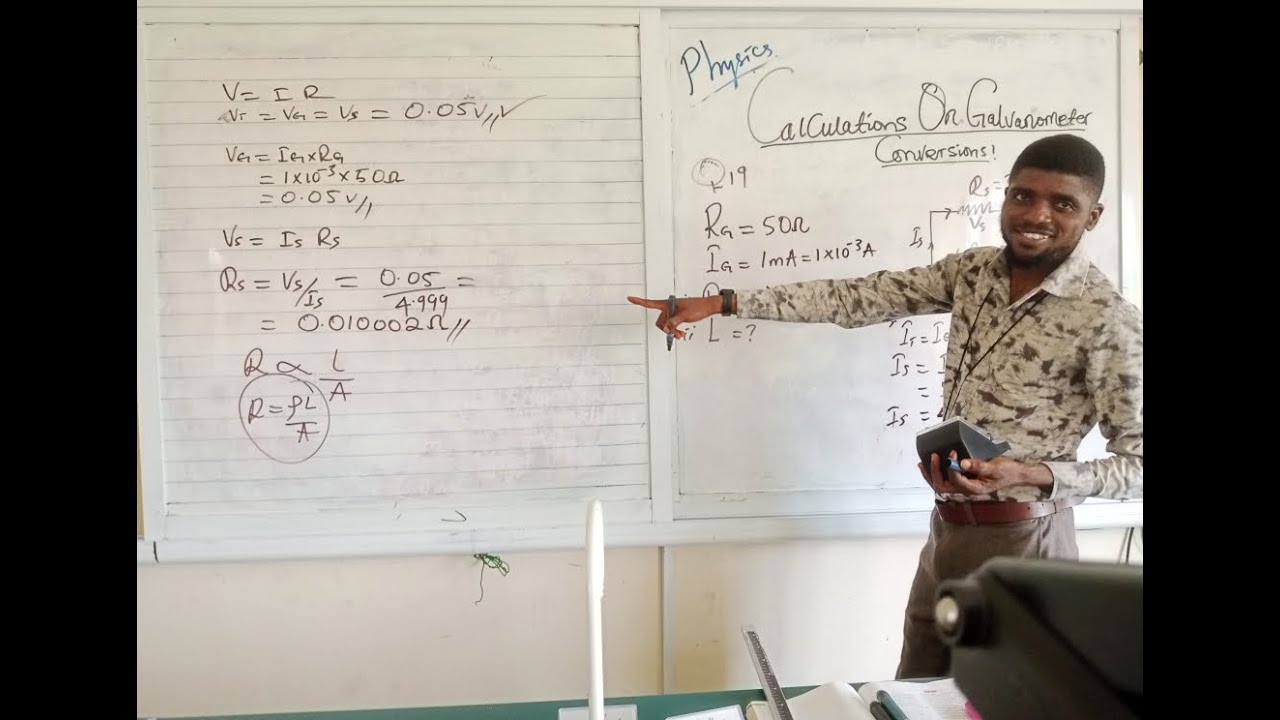 V = I R
VT = VG = VS = 0.05V// ✓
VG = IG×RG
= 1×10⁻³×50Ω
= 0.05V//
VS = IS RS
RS = VS/IS = 0.05/4.999 =
= 0.010002Ω//
R ∝ L/A
R = ρL/A
Physics
Calculations On Galvanometer
Conversions!
Q19
RG = 50Ω
IG = 1mA = 1×10⁻³A
ii L = ?
RS =
VS
IS
IT = I
IS = I
=
IS =